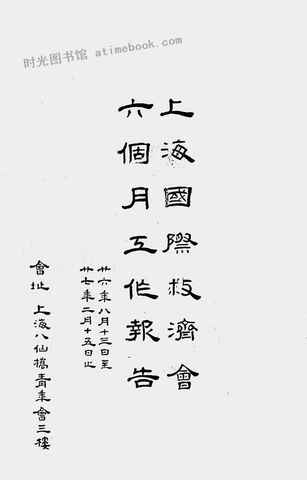 时光图书馆 atimebook.com
上海國際救濟會
六個月工作報告
廿六年八月十三日至
廿七年二月十五日止
會址 上海八仙橋青年會三樓